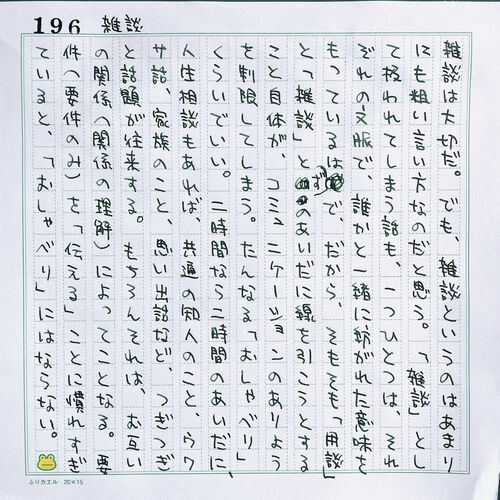 196 雑談
雑談は大切だ。でも、雑談というのはあまり
にも粗い言い方なのだと思う。「雑談」とし
て扱われてしまう話も、一つひとつは、それ
ぞれの文脈で、誰かと一緒に紡がれた意味を
もっているはずで、だから、そもそも「用談」
と「雑談」とのあいだに線を引こうとする
こと自体が、コミュニケーションのありよう
を制限してしまう。たんなる「おしゃべり」
くらいでいい。二時間なら二時間のあいだに、
人生相談もあれば、共通の知人のこと、ウワ
サ話、家族のこと、思い出話など、つぎつぎ
と話題が往来する。もちろんそれは、お互い
の関係（関係の理解）によってことなる。要
件（要件のみ）を「伝える」ことに慣れすぎ
ていると、「おしゃべり」にはならない。
ふりカエル 20×15